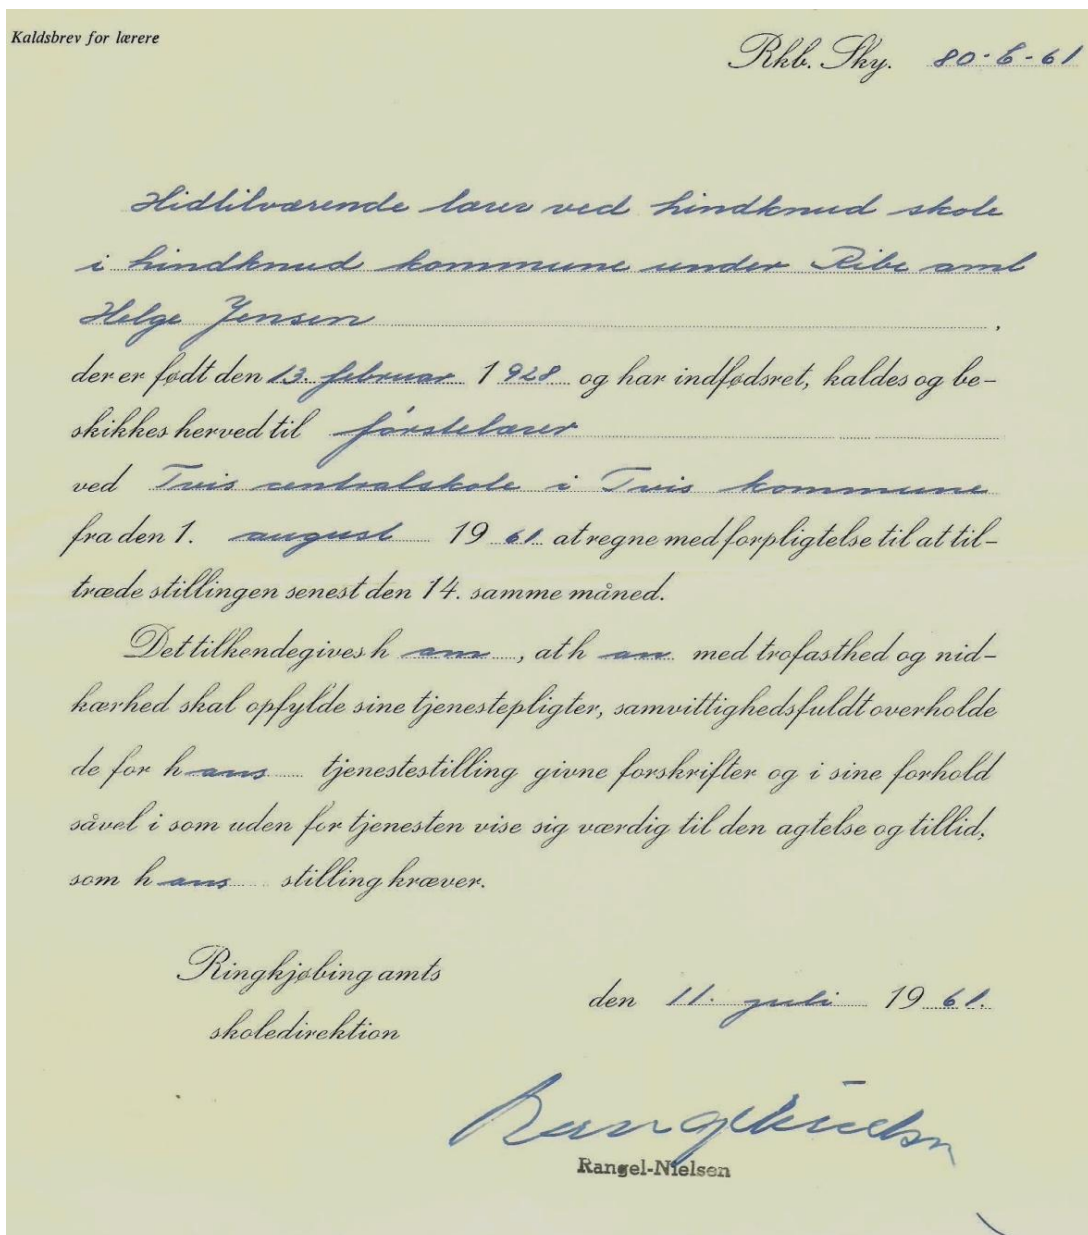 Kaldsbrev for lærere
Rkb. Sky. 80-6-61
Hidtilværende lærer ved hindknud skole
i hindknud kommune under Ribe amt
Helge Jensen,
der er født den 13. februar 1928 og har indfødsret, kaldes og be-
skikkes herved til førstelærer
ved Tvis centralskole i Tvis kommune
fra den 1. august 1961 at regne med forpligtelse til at til-
træde stillingen senest den 14. samme måned.
Det tilkendegives ham, at han med trofasthed og nid-
kærhed skal opfylde sine tjenestepligter, samvittighedsfuldt overholde
de for hans tjenestestilling givne forskrifter og i sine forhold
såvel i som uden for tjenesten vise sig værdig til den agtelse og tillid,
som hans stilling kræver.
Ringkjøbing amts
skoledirektion
den 11. juli 1961.
Rangel Nielsen
Rangel-Nielsen